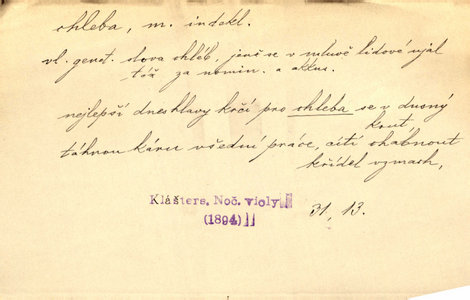 chleba, m. indekl.
vl. genet. slova chléb, jenž se v mluvě lidové ujal
též za nomin. a akkus.
nejlepší dnes hlavy krčí pro chleba se v dusný
kout,
táhnou káru všední práce, cítí ochabnout
křídel vzmach,
Klášters. Noč. violy
(1894)
31, 13.